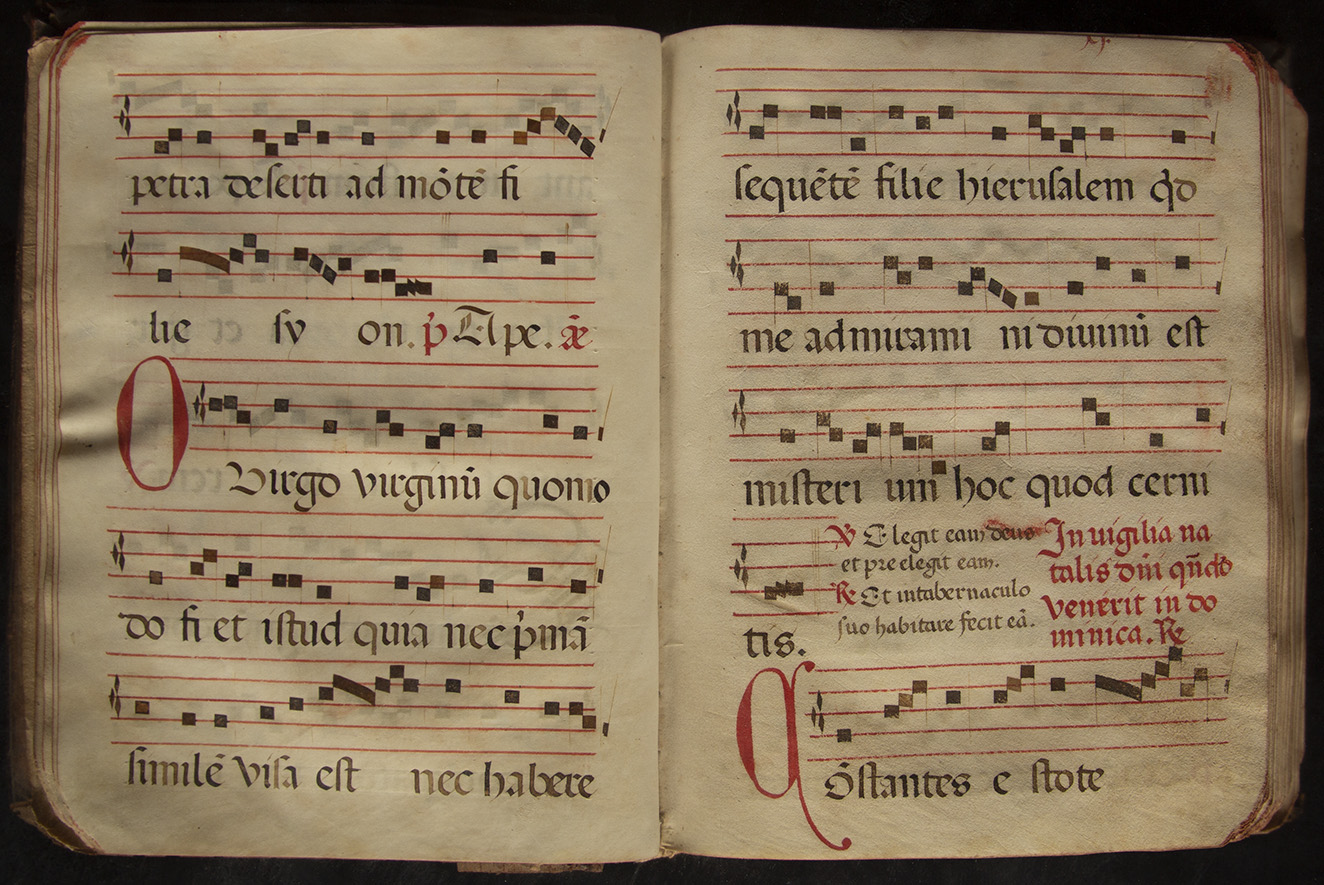 petra deserti ad mōtē fi
lie sy on. p̄ Ape. ā
O Virgo virginū quomo
do fi et istud quia nec p̄mā
similē visa est nec habere
xj.
sequētē filie hierusalem qd
me admirami ni divinū est
misteri um hoc quod cerni
tis.
℣ Elegit eam deus
et pre elegit eam.
℟ Et in tabernaculo
suo habitare fecit eā.
In vigilia na
talis dñi qñdo
venerit in do
minica. ℟
Cōstantes e stote